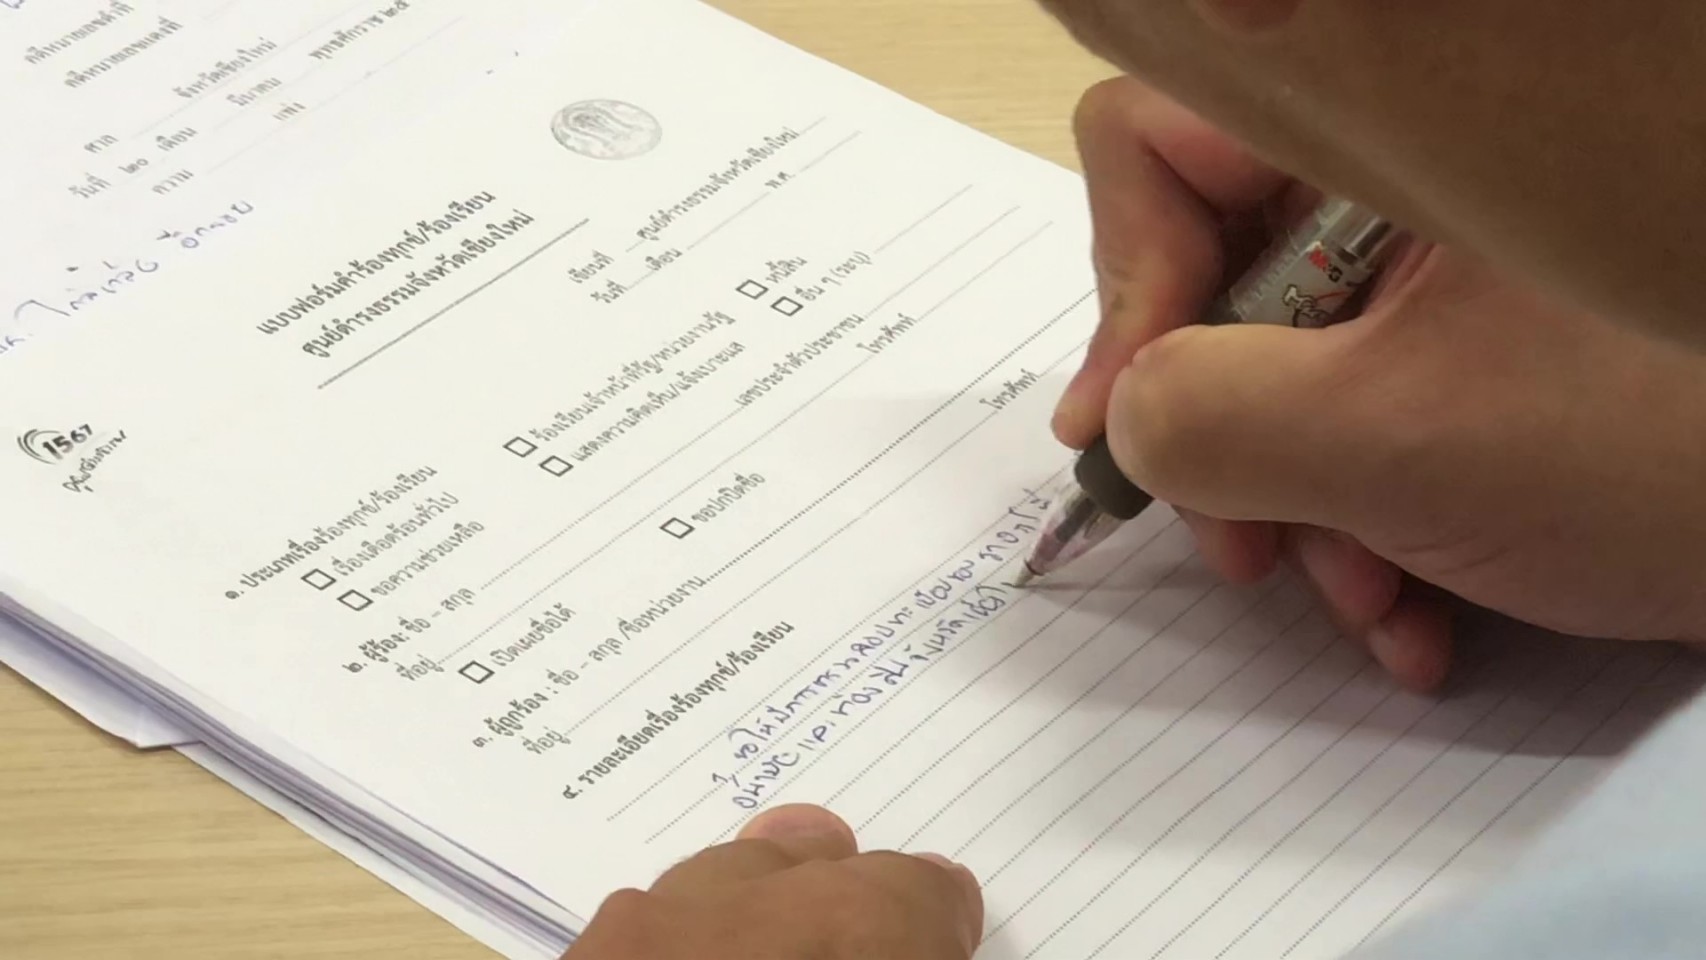 คดีหมายเลขดำที่
คดีหมายเลขแดงที่
ศาล จังหวัดเชียงใหม่
วันที่ ๒๐ เดือน มีนาคม พุทธศักราช ๒๕
ความ แพ่ง
แบบฟอร์มคำร้องทุกข์/ร้องเรียน
ศูนย์ดำรงธรรมจังหวัดเชียงใหม่
เขียนที่ ศูนย์ดำรงธรรมจังหวัดเชียงใหม่
วันที่ เดือน พ.ศ.
1567
ศูนย์ดำรงธรรม
๑. ประเภทเรื่องร้องทุกข์/ร้องเรียน
เรื่องเดือดร้อนทั่วไป ร้องเรียนเจ้าหน้าที่รัฐ/หน่วยงานรัฐ หนี้สิน
ขอความช่วยเหลือ แสดงความคิดเห็น/แจ้งเบาะแส อื่น ๆ (ระบุ)
๒. ผู้ร้อง: ชื่อ – สกุล เลขประจำตัวประชาชน
ที่อยู่ โทรศัพท์
เปิดเผยชื่อได้ ขอปกปิดชื่อ
๓. ผู้ถูกร้อง : ชื่อ – สกุล /ชื่อหน่วยงาน
ที่อยู่ โทรศัพท์
๔. รายละเอียดเรื่องร้องทุกข์/ร้องเรียน
ขอให้มีการตรวจสอบทะเบียนของ
จังหวัดเชียงใ
M&G